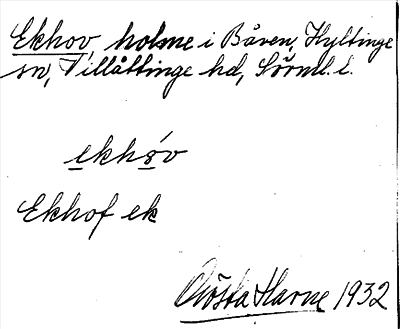 Ekhov, holme i Båven, Hyltinge
sn, Villåttinge hd, Sörml. l.
ekhóv
Ekhof ek
Gösta Harne 1932